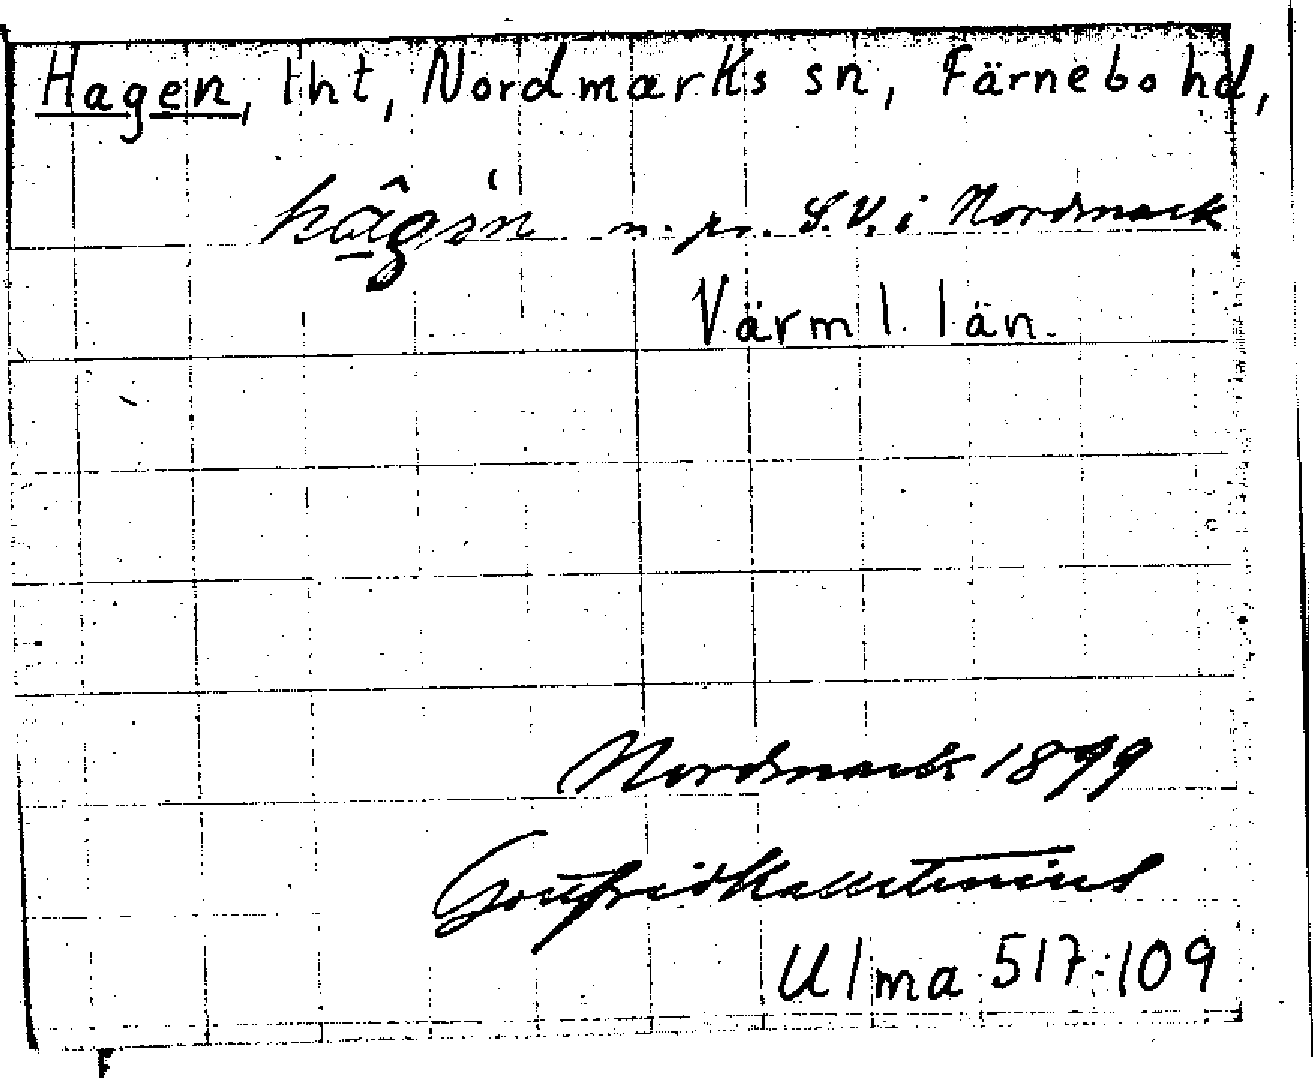 Hagen, tht, Nordmarks sn, Färnebo hd,
hâgan n. pr. S.V. i Nordmark
Värml. län.
Nordmark 1899
Gottfrid Kallstenius
Ulma 517:109